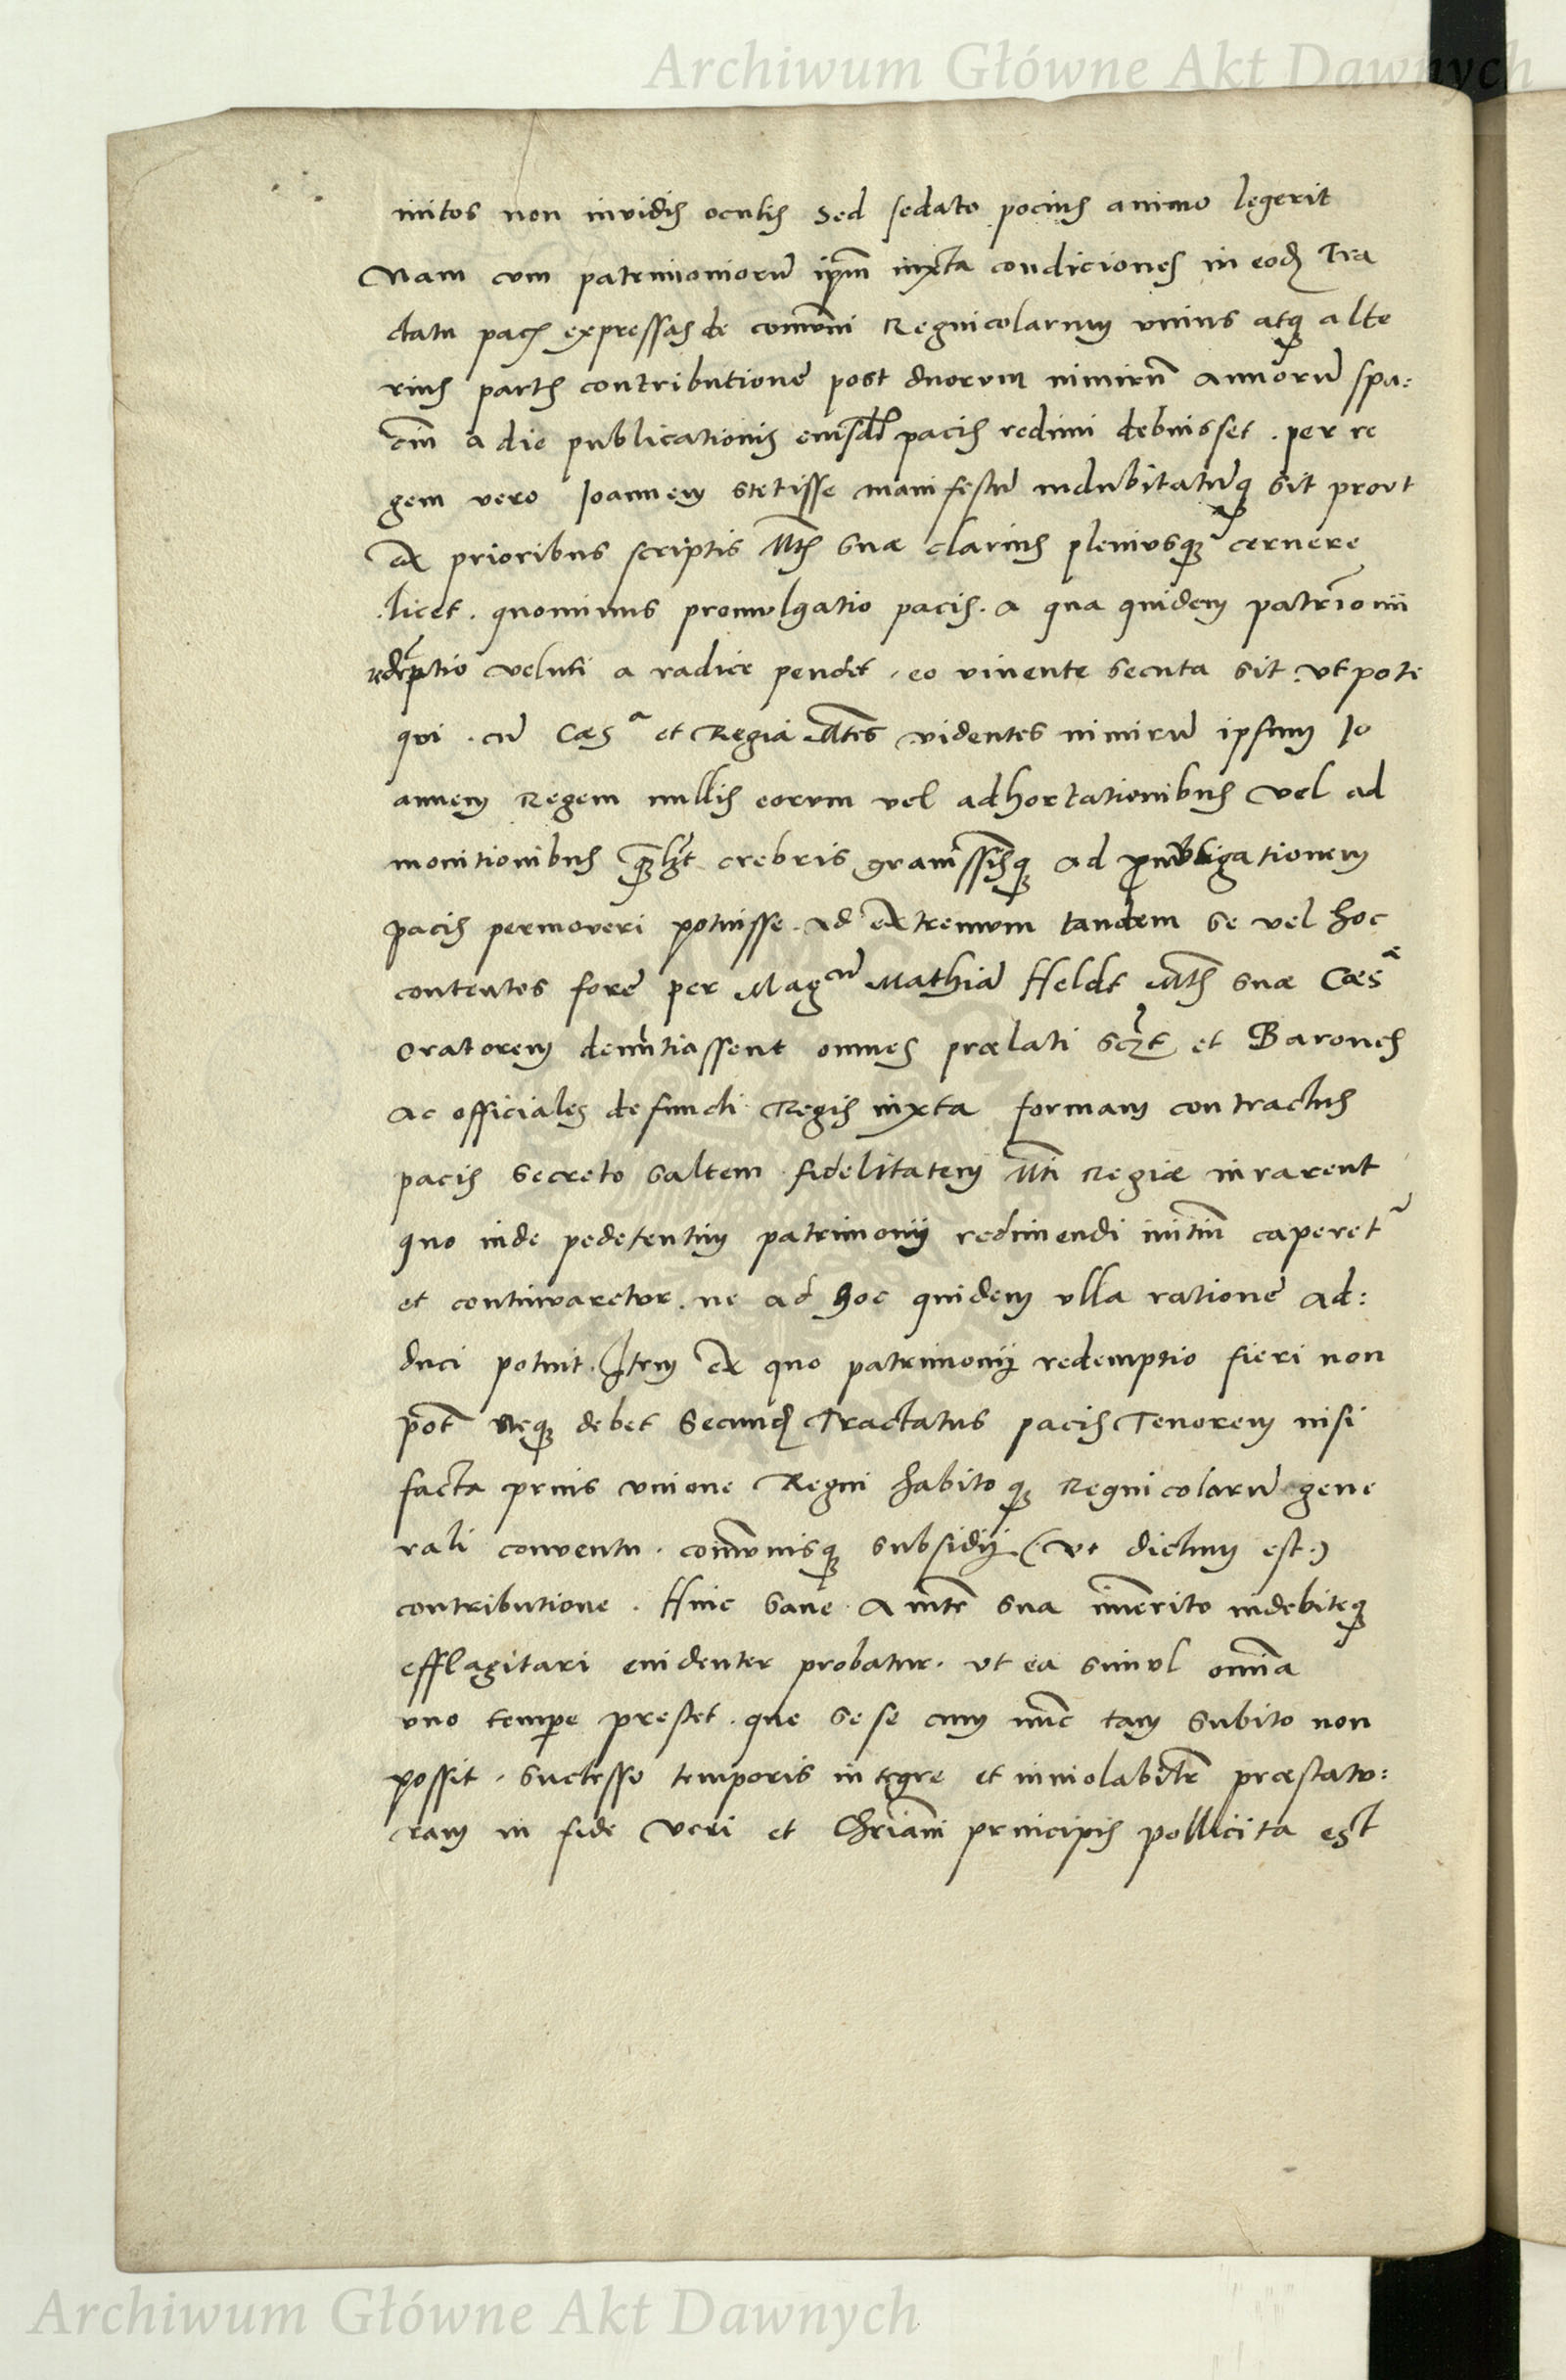 Archiwum Główne Akt Dawnych
initos non inuidis oculis sed sedato pocius animo legerit
Nam cum patrimoniorũ ip̃m iuxta condiciones in eod Tra
ctatu pacis expressas de com̃uni Regnicolarum vnius atq alte
rius partis contributione post duorum nimirũ annorũ spa:
ciũ a die publicationis eiusdẽ pacis redimi debuisset . per re
gem vero Joannem stetisse manifestũ indubitatũq sit prout
ex prioribus scriptis Mtis suæ clarius pleniusq cernere
licet . quominus promulgatio pacis . a qua quidem patrimonii
redẽptio veluti a radice pendet . eo viuente secuta sit . vt pote
qui . cũ Caesa et Regia Mtes videntes nimirũ ipsum Jo
annem Regem nullis eorum vel adhortationibus vel ad
monitionibus crebris grauissisq ad promulgationem
pacis permoueri potuisse . ad extremum tandem se vel hoc
contentos fore per Magcũ Mathiã Heldt Mtis suæ Caesæ
oratorem denũtiassent omnes prælati sczt et Barones
ac officiales defuncti Regis iuxta formam contractus
pacis secreto saltem fidelitatem Mti Regiæ iurarent
quo inde pedetentim patrimonij redimendi initiũ caperet
et continuaretur . ne ad hoc quidem vlla ratione ad:
duci potuit . Item ex quo patrimonij redemptio fieri non
pot neq debet secund Tractatus pacis Tenorem nisi
facta prius vnione Regni habitoq Regnicolarũ gene
rali conuentu . com̃unisq subsidij (vt dictum est.)
contributione . Hinc sane A mte sua im̃erito indebiteq
efflagitari euidenter probatur . vt ea simul om̃ia
vno tempe prestet . que se se cum nũc tam subito non
possit . successu temporis integre et inuiolabilr præstatu:
ram in fide veri et Chriani principis pollicita est
Archiwum Główne Akt Dawnych